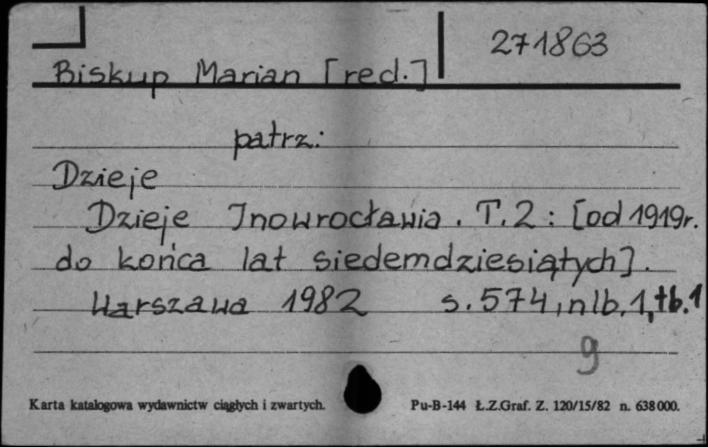 271863
Biskup Marian [red.]
patrz:
Dzieje
Dzieje Inowrocławia. T.2: [od 1919r.
do końca lat siedemdziesiątych].
Warszawa 1982 s.574, nlb.1, tb.1
9
Karta katalogowa wydawnictw ciągłych i zwartych. Pu-B-144 Ł.Z.Graf. Z. 120/15/82 n. 638000.